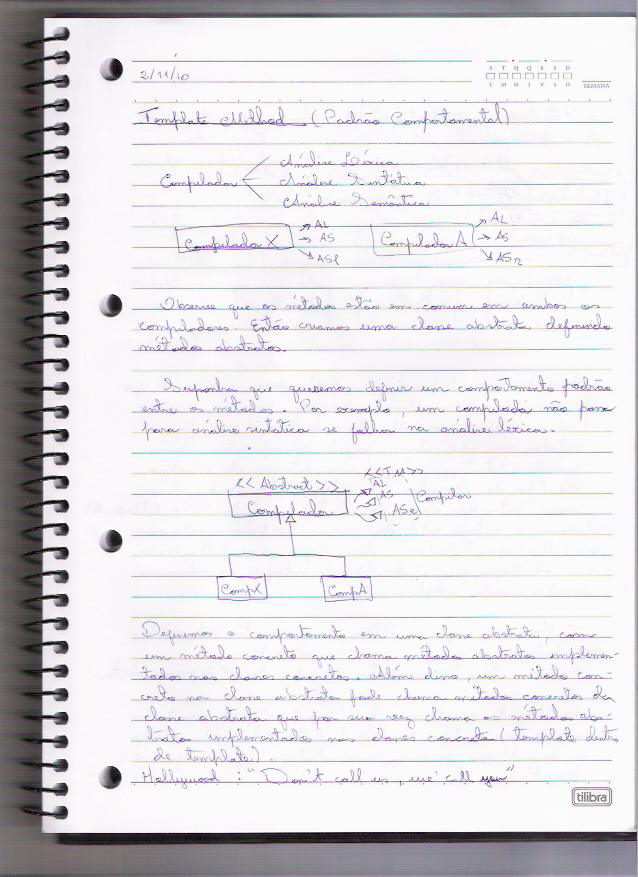 2/11/10
S T Q Q S S D
L M M J V S D
SEMANA
Template Method (Padrão Comportamental)
Análise Léxica
Compilador Análise Sintática
Análise Semântica
Compilador X AL AS ASe
Compilador A AL AS
Observe que os métodos estão em comum em ambos os
compiladores. Então criamos uma classe abstrata definindo
métodos abstratos.
Suponha que queremos definir um comportamento padrão
entre os métodos. Por exemplo, um compilador não passa
para análise sintática se falhar na análise léxica.
<<Abstract>> <<TM>>
Compilador AL AS ASe Compilar
CompX CompA
Definimos o comportamento em uma classe abstrata, com
um método concreto que chama métodos abstratos implemen-
tados nas classes concretas. Além disso, um método con-
creto na classe abstrata pode chamar métodos concretos da
classe abstrata que por sua vez chama os métodos abs-
tratos implementados nas classes concreta (template dentro
de template).
Hollywood: "Don't call us, we'call you"
tilibra